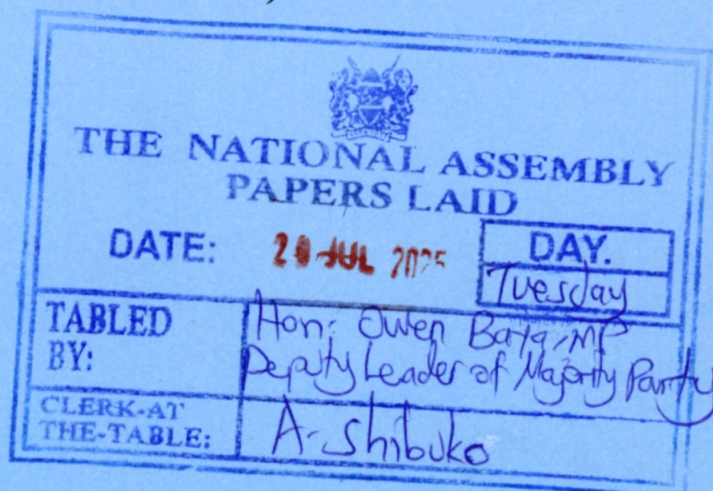 THE NATIONAL ASSEMBLY
PAPERS LAID
DATE: JUL 2025
DAY.
Tuesday
TABLED BY:
Hon. Owen Baya, MP
Deputy Leader of Majority Party
CLERK-AT
THE-TABLE:
A. Shibuko